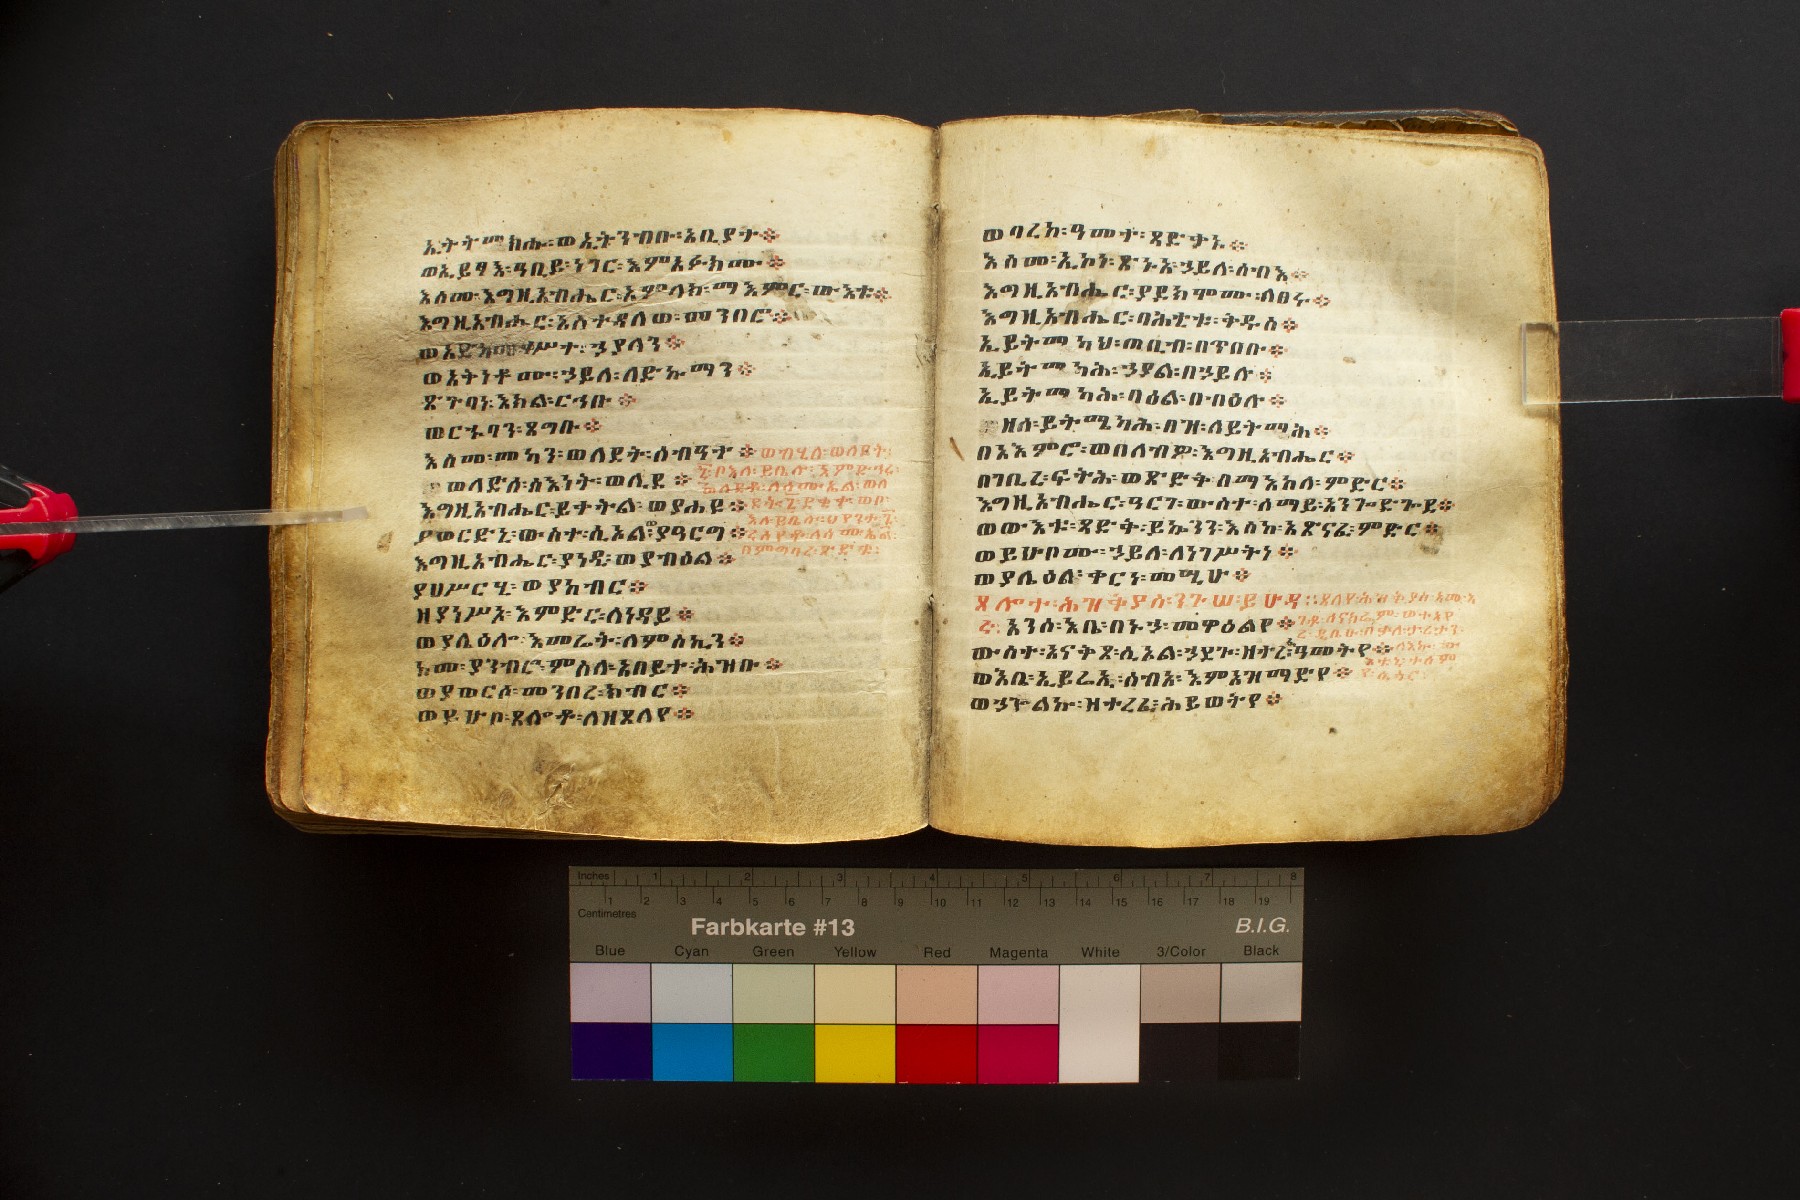 ኢትትመክሑ፡ወኢትንብቡ፡አቢያተ፨
ወኢይፃእ፡ዓቢይ፡ነገር፡እምአፉክሙ፨
እስመ፡እግዚአብሔር፡አምላክ፡ማእምር፡ውእቱ፨
እግዚአብሔር፡አስተዳለወ፡መንበሮ፨
ወአድከመ፡ቀሥተ፡ኃያላን፨
ወአትነቶሙ፡ኃይለ፡ለድኩማን፨
ጽጉባነ፡እክል፡ርኅቡ፨
ወርኁባን፡ጸግቡ፨
እስመ፡መካን፡ወለደት፡ሰብዓተ፨
ወላድሰ፡ስእነት፡ወሊደ፨
እግዚአብሔር፡ይቀትል፡ወያሐዩ፨
ያወርድኒ፡ውስተ፡ሲኦል፡ወያዓርግ፨
እግዚአብሔር፡ያነዲ፡ወያብዕል፨
ያሀሥርሂ፡ወያከብር፨
ዘያነሥኦ፡እምድር፡ለነዳይ፨
ወያሌዕሎ፡እመሬት፡ለምስኪን፨
ከመ፡ያንብሮ፡ምስለ፡አበይተ፡ሕዝቡ፨
ወያወርሶ፡መንበረ፡ክብር፨
ወይሁቦ፡ጸሎቶ፡ለዘጸለየ፨
ወባረከ፡ዓመተ፡ጻድቃኑ፨
እስመ፡ኢኮነ፡ጽኑአ፡ኃይለ፡ሰብእ፨
እግዚአብሔር፡ያደክሞሙ፡ለፀሩ፨
እግዚአብሔር፡ባሕቲቱ፡ቅዱስ፨
ኢይትመካህ፡ጠቢብ፡በጥበቡ፨
ኢይትመካሕ፡ኃያል፡በኃይሉ፨
ኢይትመካሕ፡ባዕል፡በብዕሉ፨
ዘሰ፡ይትሜካሕ፡በዝ፡ለይትማሕ፨
በአእምሮ፡ወበለብዎ፡እግዚአብሔር፨
በገቢረ፡ፍትሕ፡ወጽድቅ፡በማእከለ፡ምድር፨
እግዚአብሔር፡ዓርገ፡ውስተ፡ሰማይ፡አንጐድጐደ፨
ወውእቱ፡ጻድቅ፡ይኴንን፡እስከ፡አጽናፈ፡ምድር፨
ወይሁቦሙ፡ኃይለ፡ለነገሥትነ፨
ወያሌዕል፡ቀርነ፡መሲሁ፨
ጸሎተ፡ሕዝቅያስ፡ንጉሠ፡ይሁዳ፡፡
አንሰ፡እቤ፡በኑኃ፡መዋዕልየ፨
ውስተ፡አናቅጸ፡ሲኦል፡ኃደጉ፡ዘተረፈ፡ዓመትየ፨
ወእቤ፡ኢይሬኢ፡ሰብአ፡እምአዝማድየ፨
ወኃጐልኩ፡ዘተረፈ፡ሕይወትየ፨
Inches 1 2 3 4 5 6 7 8
1 2 3 4 5 6 7 8 9 10 11 12 13 14 15 16 17 18 19
Centimetres
Farbkarte #13 B.I.G.
Blue Cyan Green Yellow Red Magenta White 3/Color Black